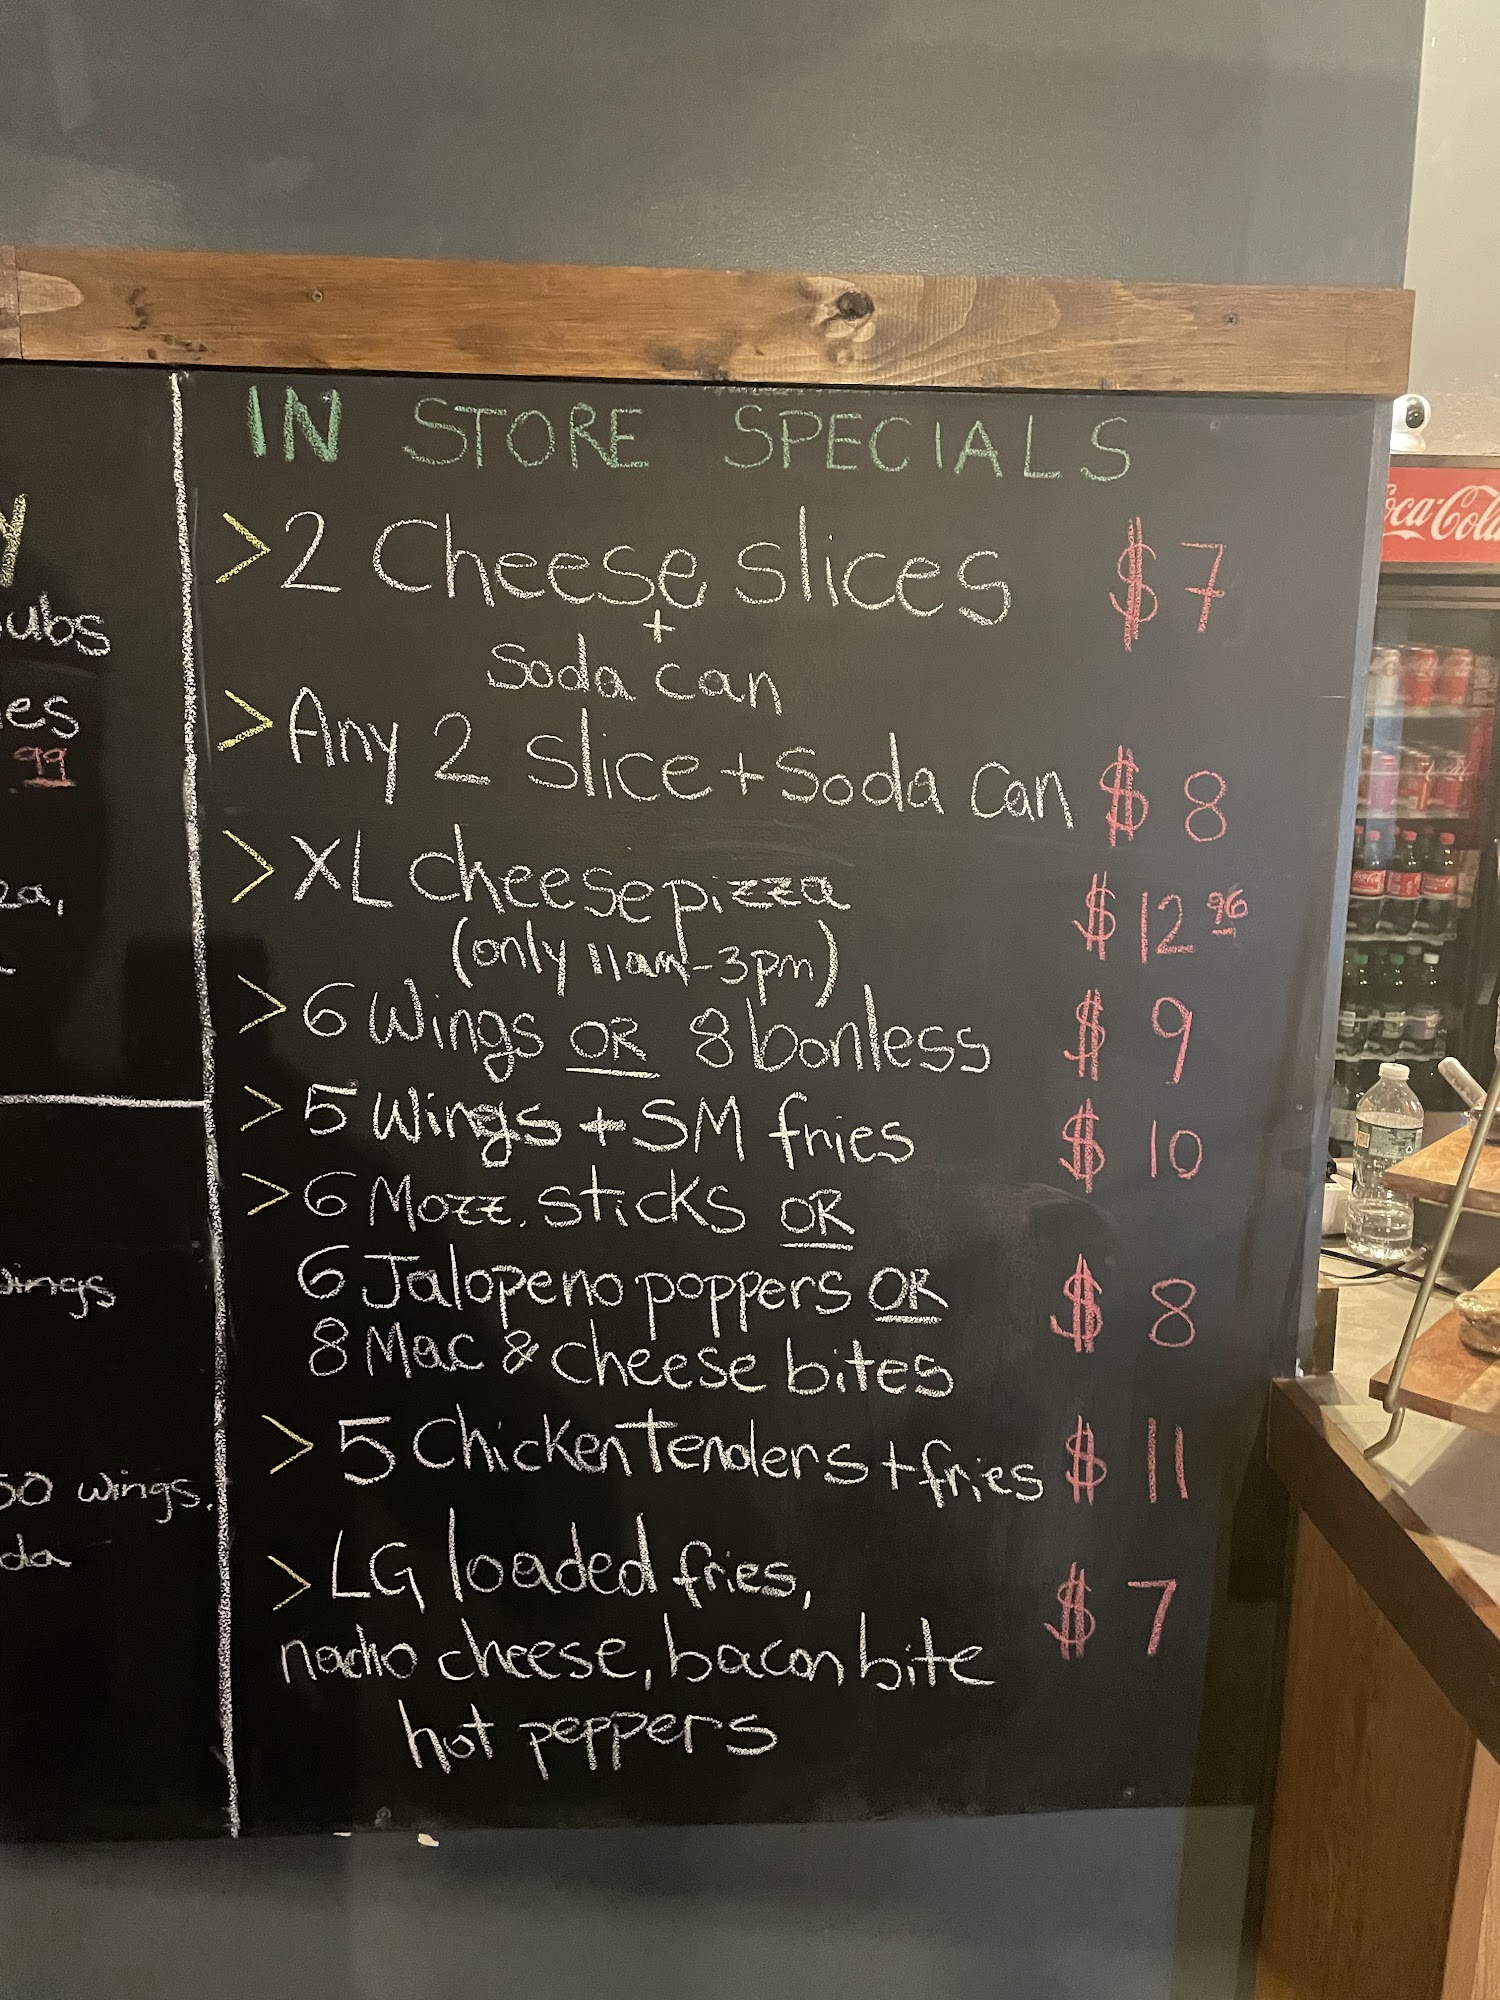 IN STORE SPECIALS
> 2 Cheese slices $7
+
Soda can
> Any 2 slice + Soda can $8
> XL cheese pizza $12 96
(only 11am-3pm)
> 6 Wings OR 8 bonless $9
> 5 Wings + SM fries $10
> 6 Mozz. sticks OR
6 Jalopeno poppers OR $8
8 Mac & cheese bites
> 5 Chicken Tenders + fries $11
> LG loaded fries, $7
nacho cheese, bacon bite
hot peppers
ubs
es
99
za,
ings
50 wings.
da
Coca-Cola